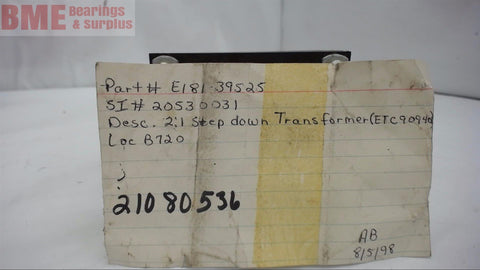 BME Bearings & Surplus
Part # E181-39525
SI# 20530031
Desc. 2:1 Step down Transformer (ETC9094d
Loc B720
21080536
AB
8/5/98